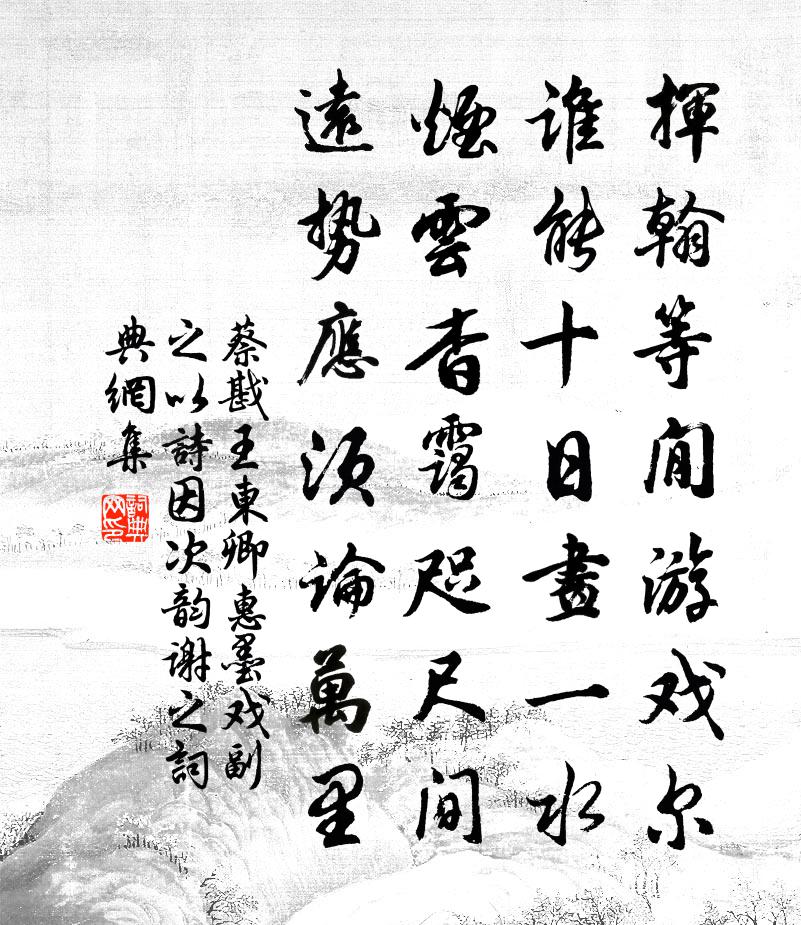 揮翰等閒游戏尔
誰能十日畫一水
煙雲杳靄咫尺間
遠势應須論萬里
蔡戡王東卿惠墨戏副
之以詩因次韵謝之詞
典網集
詞典网印